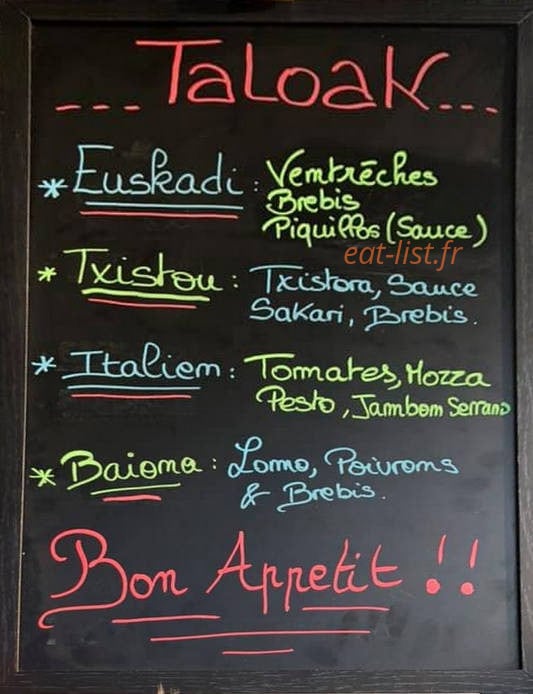 ---TaLoaK---
* Euskadi : Ventrêches
Brebis
Piquillos (Sauce)
eat-list.fr
* Txistou : Txistora, Sauce
Sakari, Brebis.
* Italien : Tomates, Mozza
Pesto, Jambon Serrano
* Baiona : Lomo, Poivrons
& Brebis.
Bon Appetit !!